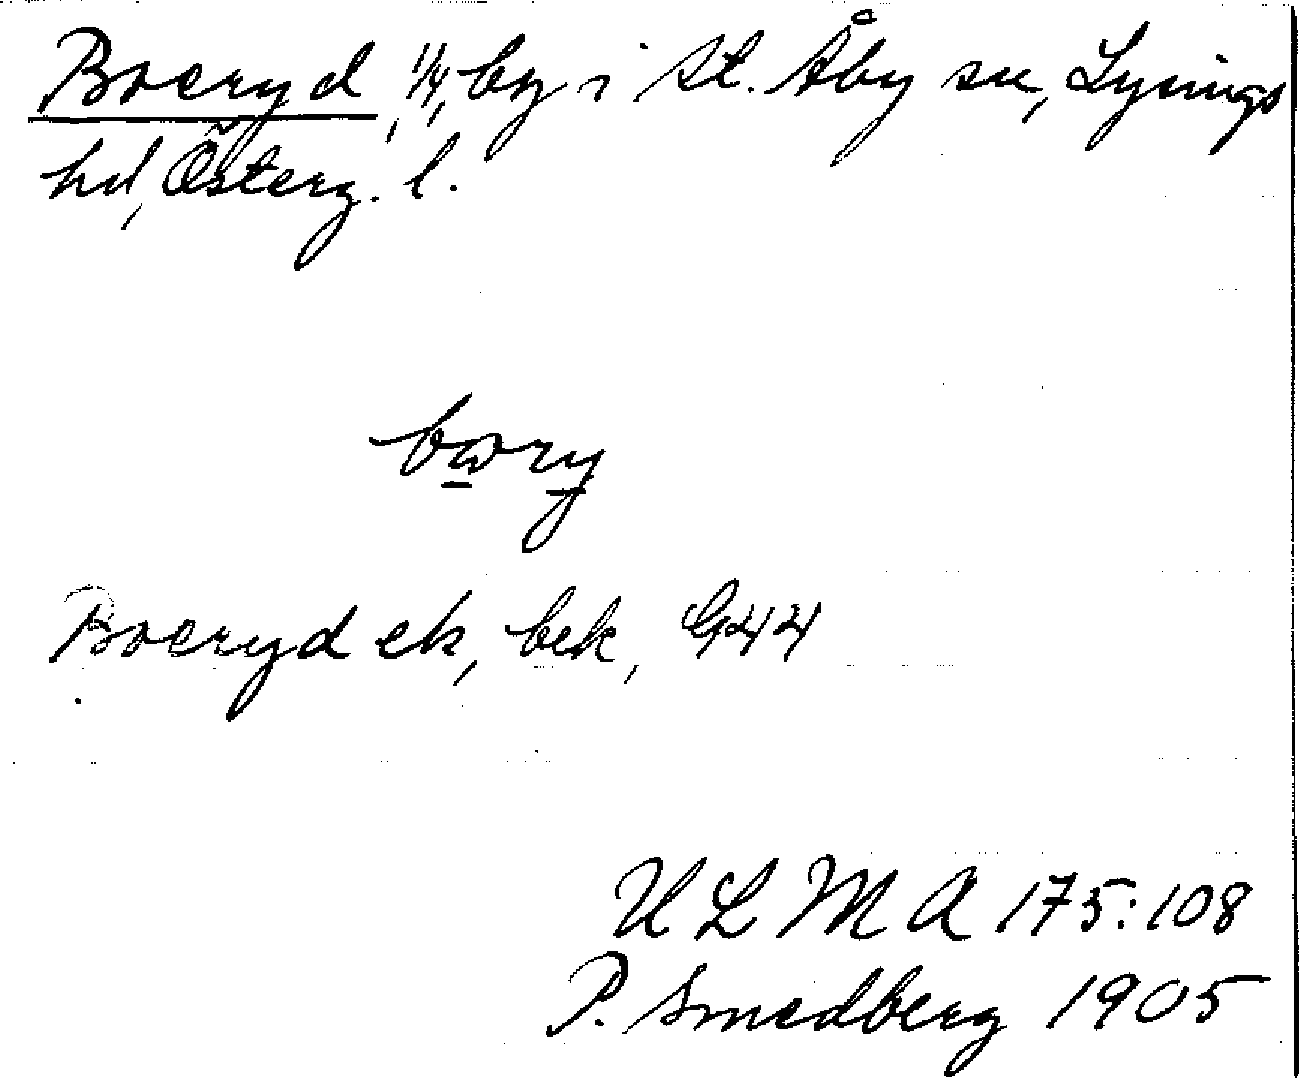 Boeryd, 1/4, by i St. Åby sn, Lysings
hd, Österg. l.
bꞷry
Boeryd ek, bek, G44
ULMA 175:108
P. Smedberg 1905